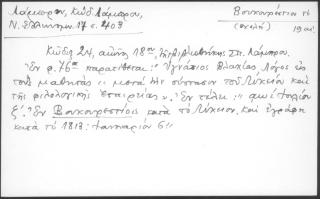 Λάμπρου, Κώδ Λάμπρου,
Ν. Ἑλληνομν. 17 σ. 203
Βουκουρέστιον
(σχολή) 19 αἰ.
Κώδιξ 24, αἰῶνος 18ου τῆς Βιβλιοθήκης Σπ. Λάμπρου.
Ἐν φ. 76α παρατίθεται: Ἰγνάτιος Βλαχίας Λόγος εἰς
τοὺς μαθητὰς "μετὰ τὴν σύστασιν τοῦ Λυκείου καὶ
τῆς φιλολογικῆς ἑταιρείας". Ἐν τέλει: "αωί Ἰουλίου
Ἐν Βουκουρεστίῳ κατὰ τὸ Λύκειον, καὶ ἐγράφη
κατὰ τὸ 1813: Ἰανουαρίου 6"